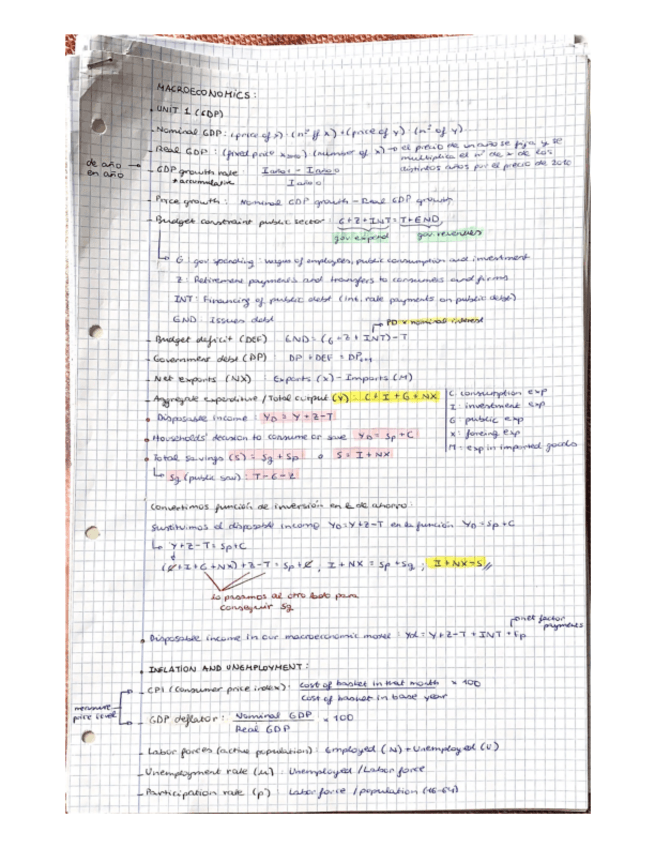 MACROECONOMICS:
UNIT 1 (GDP)
- Nominal GDP: (price of x) · (nº of x) + (price of y) · (nº of y)
- Real GDP: (fixed price) (number of x) → el precio de un año se fija y se
multiplica el nº de x de los
distintos años por el precio de 2010
de año → - GDP growth rate
en año
* accumulative
- Price growth: Nominal GDP growth - Real GDP growth
- Budget constraint public sector: G+Z+INT = T+END
gov expend gov revenues
G: gov spending: wages of employees, public consumption and investment
Z: Retirement payments and transfers to consumers and firms
INT: Financing of public debt (int. rate payments on public debt)
END: Issues debt
PD x nominal interest
- Budget deficit (DEF) END = (G+Z+INT)-T
- Government debt (DP) DP + DEF = DPt+1
- Net exports (NX): Exports (X) - Imports (M)
- Aggregate expenditure / Total output (Y): C+I+G+NX
C consumption exp
I: investment exp
G public exp
X: foreing exp
M: exp in imported goods
• Disposable income: YD = Y+Z-T
• Households' decision to consume or save YD = Sp + C
• Total savings (S) = Sg + Sp o S = I + NX
↳ Sg (public sav): T-G-Z
Convertimos función de inversión en la de ahorro:
Sustituimos el disposable income YD=Y+Z-T en la función YD=Sp+C
↳ Y+Z-T=Sp+C
(C+I+G+NX)+Z-T = Sp+C, I+NX = Sp+Sg; I+NX=S //
Lo pasamos al otro lado para
conseguir Sg
net factor
payments
• Disposable income in our macroeconomic model: Yd = Y+Z-T+INT+
• INFLATION AND UNEMPLOYMENT:
- CPI (Consumer price index): cost of basket in that month x 100
cost of basket in base year
measure
price level
- GDP deflator: Nominal GDP x 100
Real GDP
- Labor forces (active population): Employed (N) + Unemployed (U)
- Unemployment rate (u): Unemployed / Labor force
- Participation rate (p) Labor force / population (16-64)